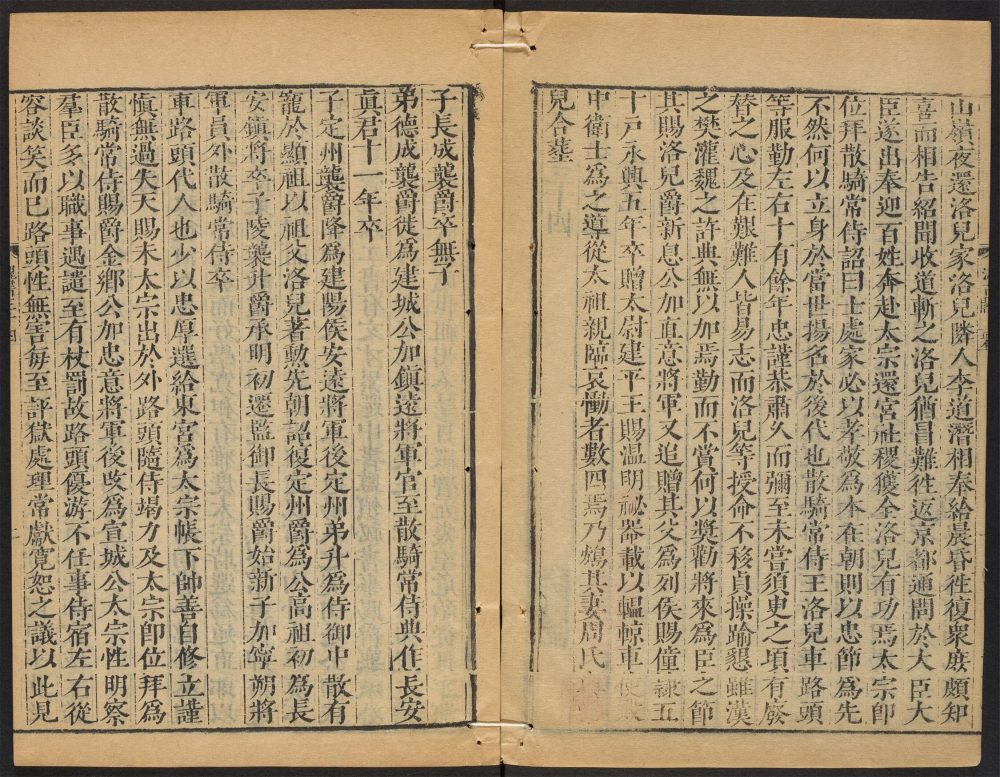 山嶺夜還洛兒家洛兒隣人李道潛相奉給晨昏徃復衆庶頗知
喜而相告紹聞收道斬之洛兒猶冒難徃返京都通問於大臣大
臣遂出奉迎百姓奔赴太宗還宮社稷獲全洛兒有功焉太宗卽
位拜散騎常侍詔曰士處家必以孝敬爲本在朝則以忠節爲先
不然何以立身於當世揚名於後代也散騎常侍王洛兒車路頭
等服勤左右十有餘年忠謹恭肅久而彌至未嘗須臾之頃有廢
替之心及在艱難人皆易志而洛兒等授命不移貞操踰懇雖漢
之樊灌魏之許典無以加焉勤而不賞何以奬勸將來爲臣之節
其賜洛兒爵新息公加直意將軍又追贈其父爲列侯賜僮隸五
十戸永興五年卒贈太尉建平王賜温明祕器載以轀輬車使
中衛士爲之導從太祖親臨哀慟者數四焉乃鴆其妻周氏
兒合葬
子長成襲爵卒無子
弟德成襲爵徙爲建城公加鎭遠將軍官至散騎常侍典作長安
眞君十一年卒
子定州襲爵降爲建陽侯安遠將軍後定州弟升爲侍御中散有
寵於顯祖以祖父洛兒著勲先朝詔復定州爵爲公高祖初爲長
安鎭將卒子陵襲升爵承明初遷監御長賜爵始新子加寧朔將
軍員外散騎常侍卒
車路頭代人也少以忠厚選給東宮爲太宗帳下帥善自修立謹
愼無過失天賜末太宗出於外路頭隨侍竭力及太宗卽位拜爲
散騎常侍賜爵金鄕公加忠意將軍後改爲宣城公太宗性明察
羣臣多以職事遇譴至有杖罰故路頭優游不任事侍宿左右從
容談笑而已路頭性無害每至評獄處理常獻寬恕之議以此見